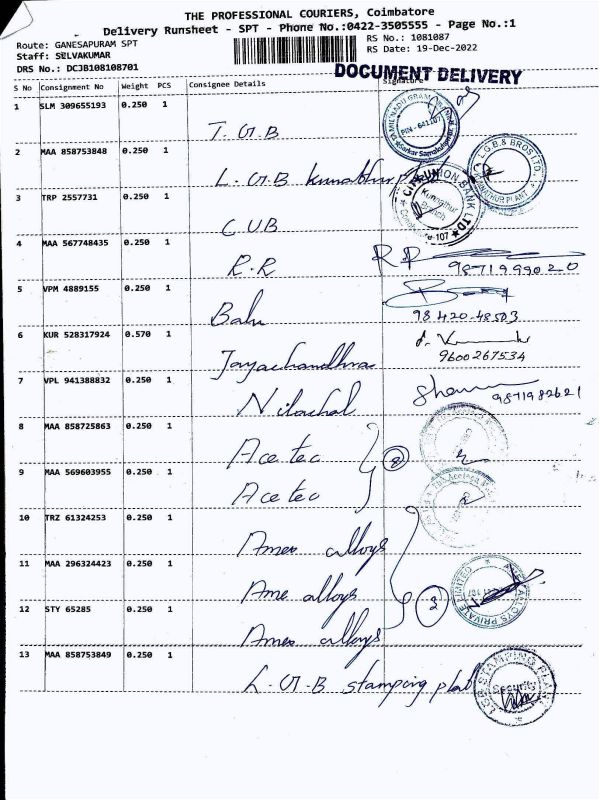 THE PROFESSIONAL COURIERS, Coimbatore
Delivery Runsheet - SPT - Phone No.:0422-3505555 - Page No.:1
Route: GANESAPURAM SPT
RS No.: 1081087
Staff: SELVAKUMAR
RS Date: 19-Dec-2022
DRS No.: DCJB108108701
DOCUMENT DELIVERY
S No Consignment No Weight PCS Consignee Details Signature
1 SLM 309655193 0.250 1
T.G.B
2 MAA 858753848 0.250 1
L.G.B kunnathur pl
3 TRP 2557731 0.250 1
CUB
4 MAA 567748435 0.250 1
R.R
9871999020
5 VPM 4889155 0.250 1
Balu
98420-48503
6 KUR 528317924 0.570 1
Jayachandhra
9600267534
7 VPL 941388832 0.250 1
Nilachal
9871982621
8 MAA 858725863 0.250 1
Ace tec
2
9 MAA 569603955 0.250 1
Ace tec
10 TRZ 61324253 0.250 1
Amex alloys
11 MAA 296324423 0.250 1
Ame alloys
3
12 STY 65285 0.250 1
Amex alloys
13 MAA 858753849 0.250 1
L.G.B stamping plat